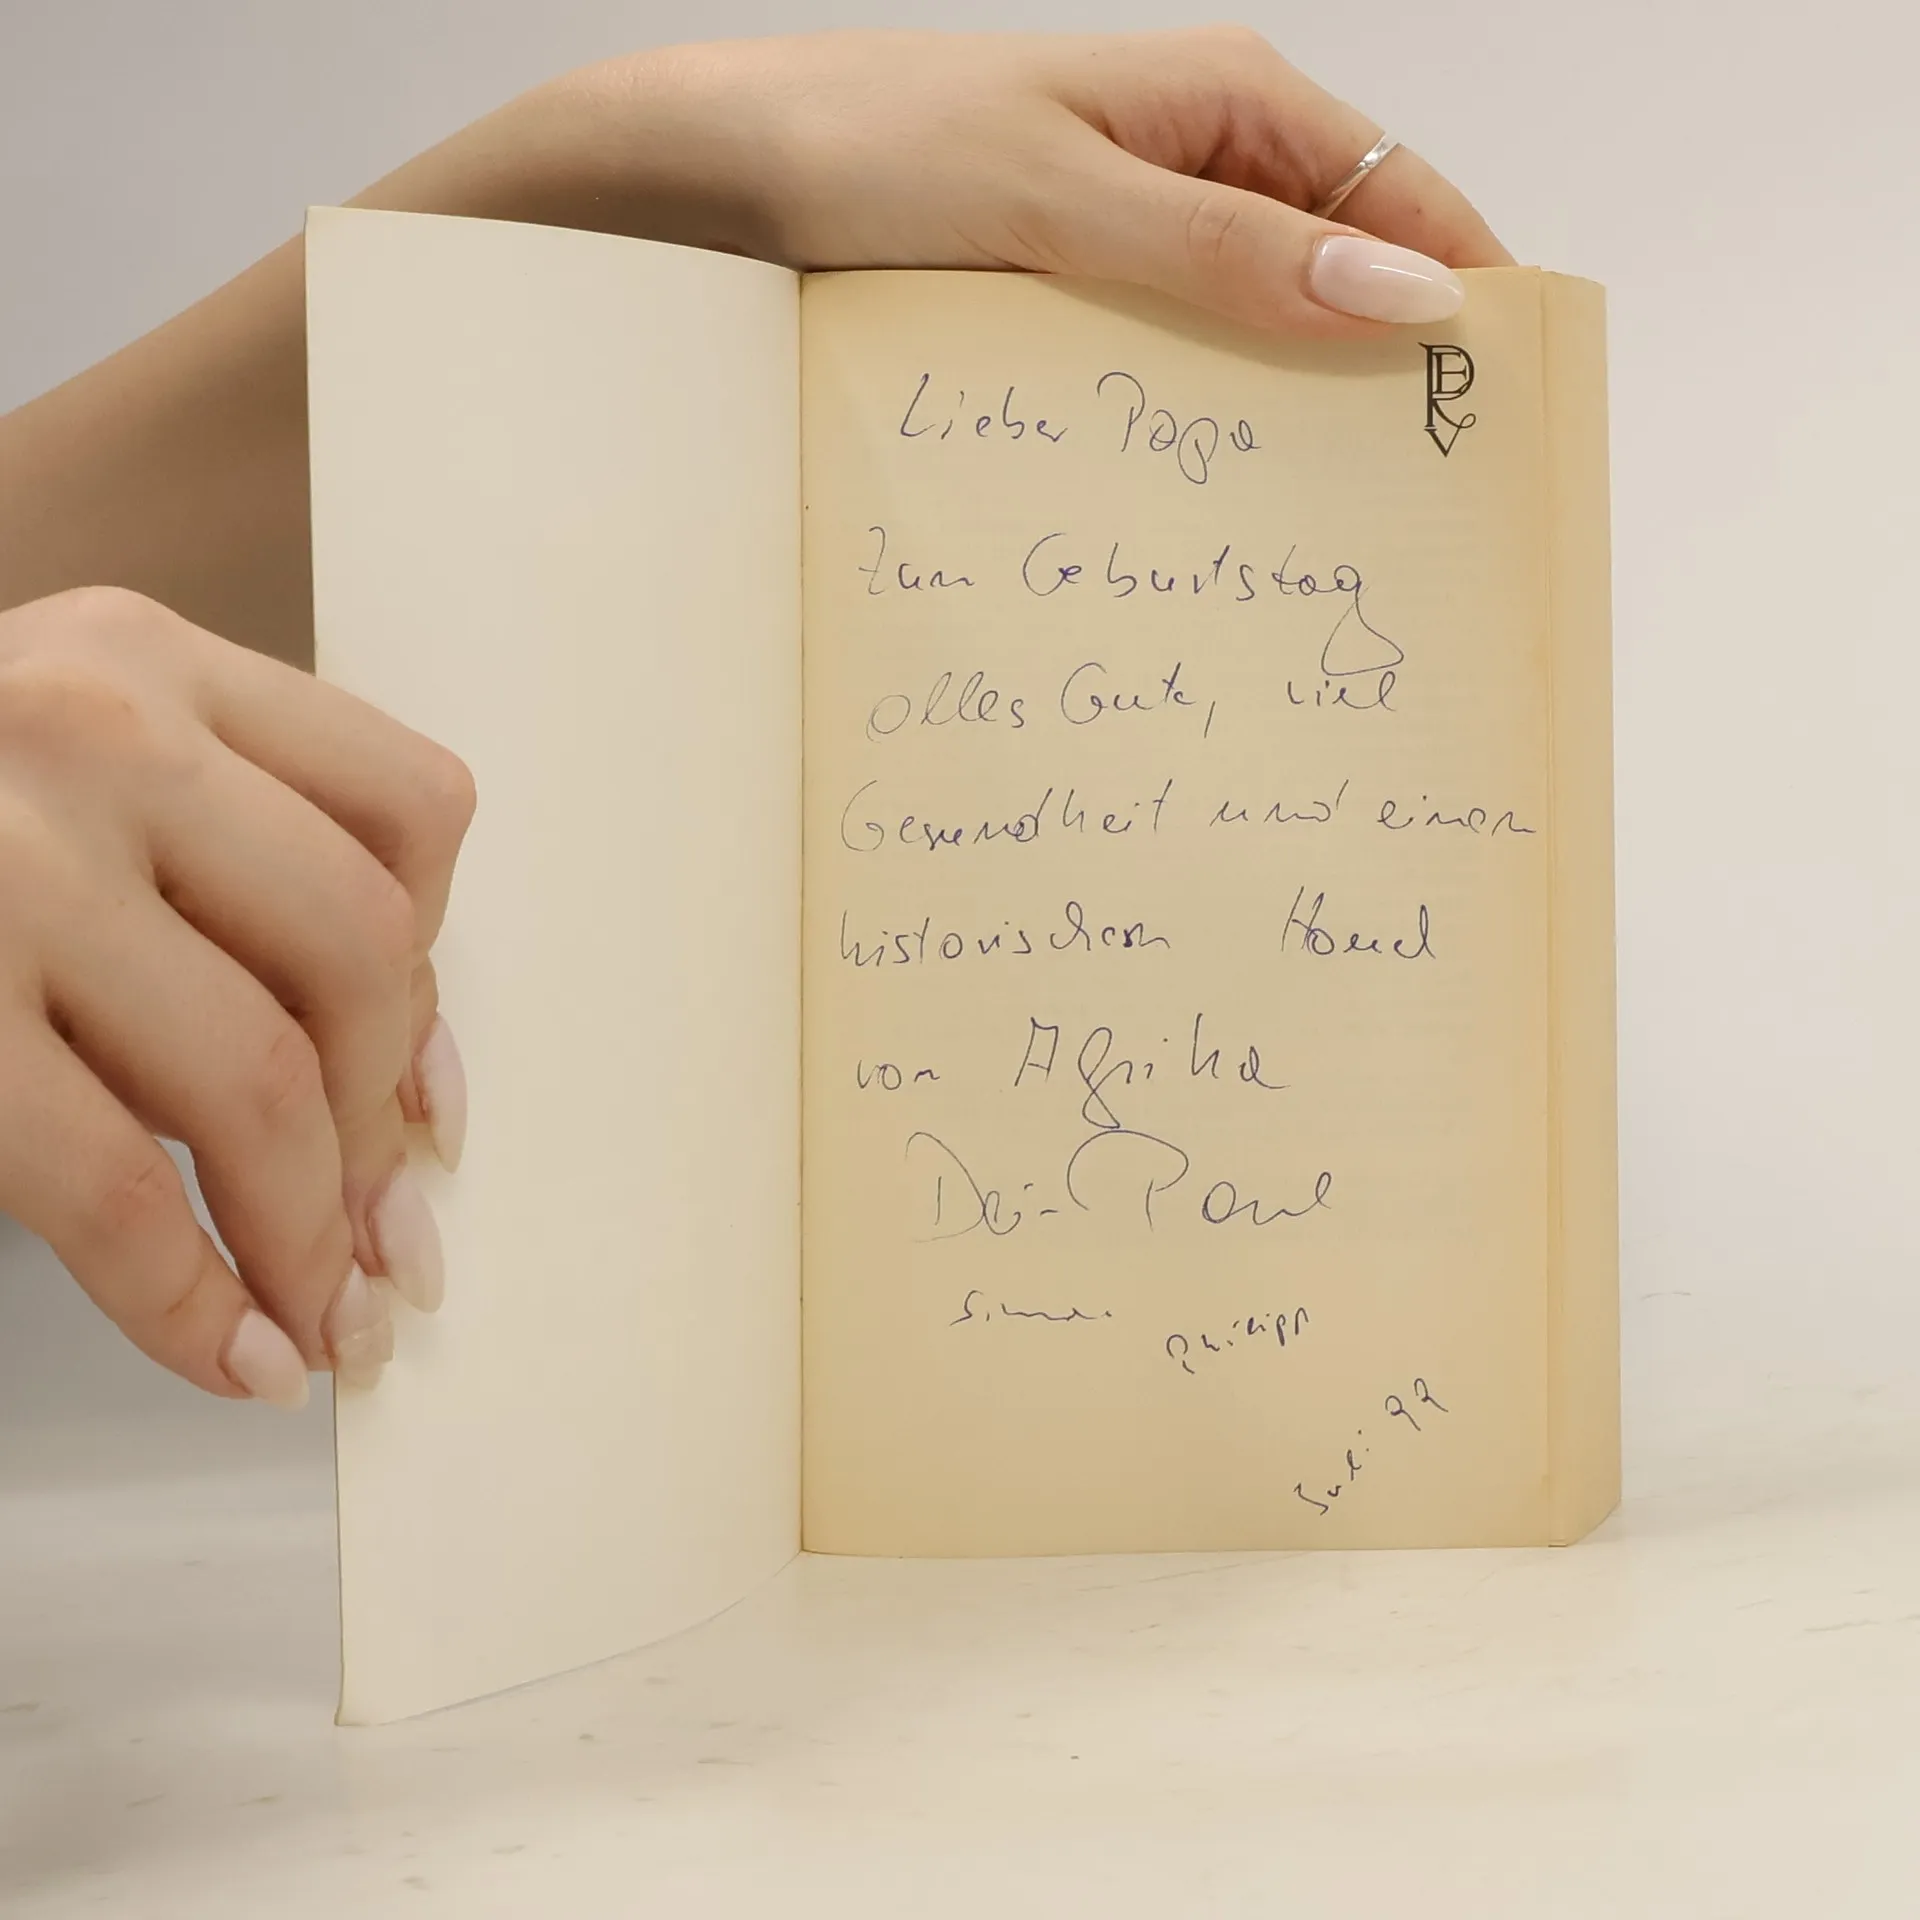 PERV
Lieber Papa
Zum Geburtstag
alles Gute, viel
Gesundheit und einen
historischen Hauch
von Afrika
Dein Paul
Simon
Philipp
Juli 99